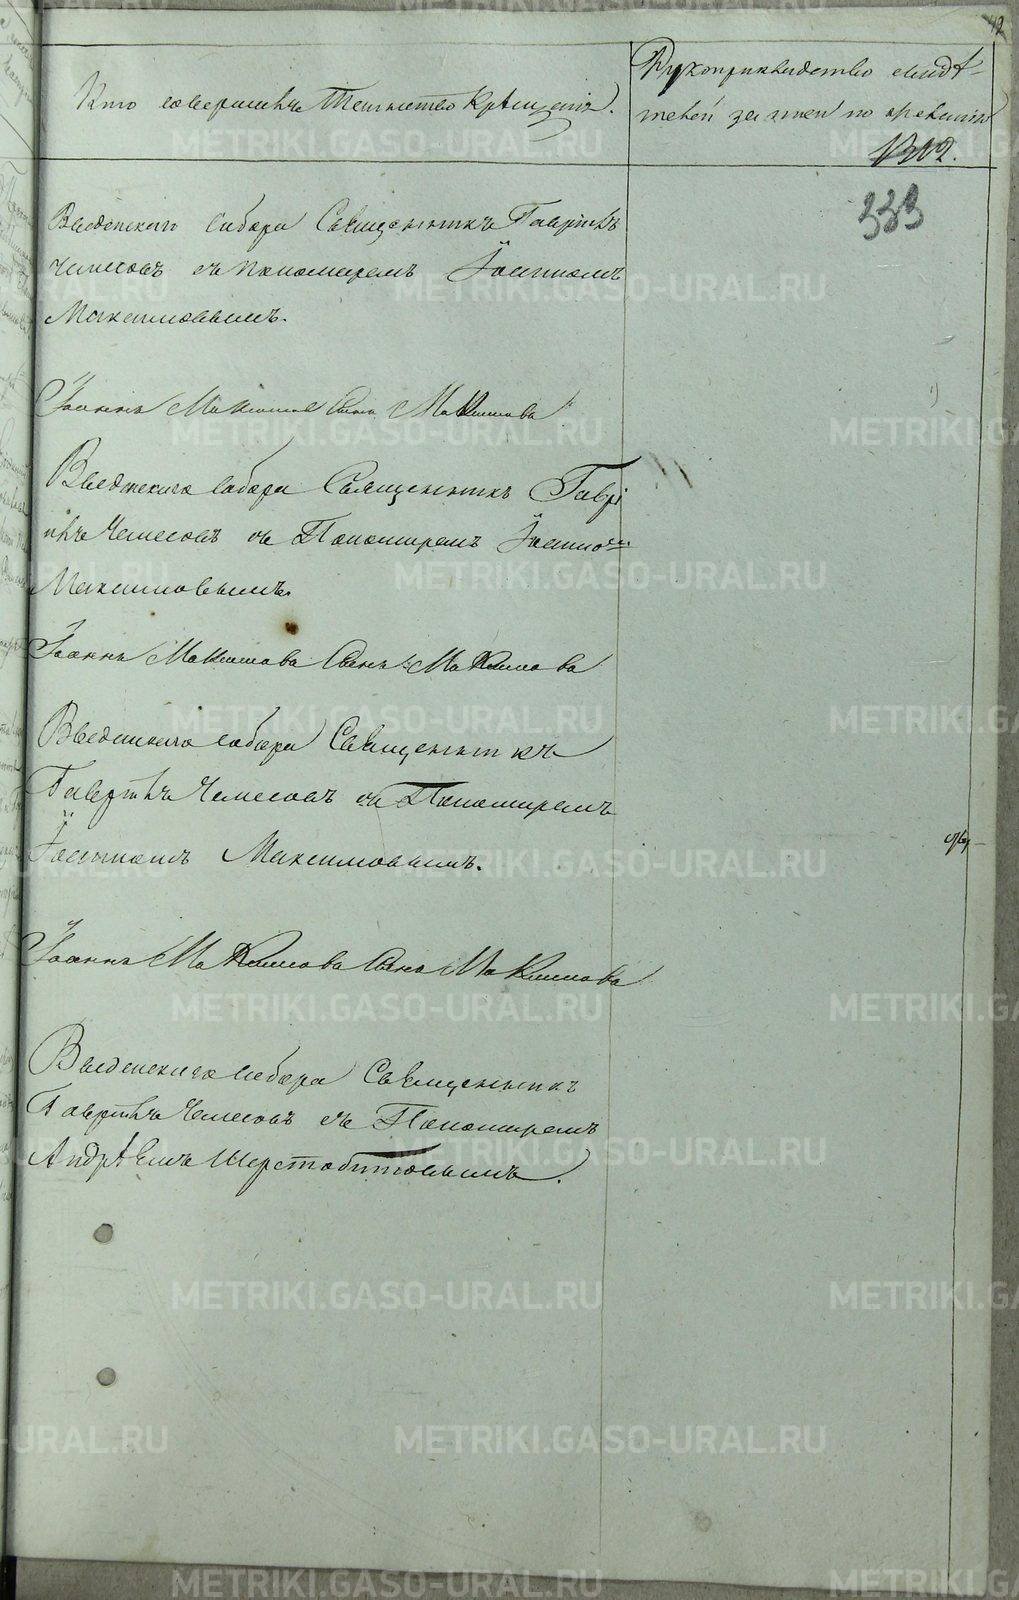 42
Кто совершилъ Таинство Крѣщенія.
Рукоприкладство свидѣ-
телей записи по
333
Введенского Собора Священникъ Гавріилъ
Чемесовъ съ Пономаремъ Іоанномъ
Максимовымъ.
Іоаннъ Максимовъ Сынъ Максимова
Введенскаго Собора Священникъ Гаврі
илъ Чемесовъ съ Пономаремъ Іоанно
Максимовымъ.
Іоаннъ Максимова Сынъ Максимова
Введенскаго Собора Священникъ
Гавріилъ Чемесовъ съ Пономаремъ
Іоанномъ Максимовымъ.
Іоаннъ Максимова Сынъ Максимова
Введенскаго Собора Священникъ
Гавріилъ Чемесовъ съ Пономаремъ
Андрѣемъ Шерстобитовымъ.
METRIKI.GASO-URAL.RU